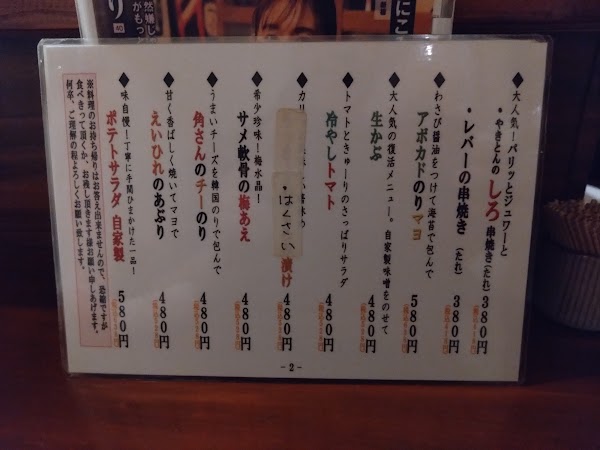 ◆大人気！パリッとジュワーと
・やきとんのしろ 串焼き(たれ) 380円
・レバーの串焼き(たれ) 380円
◆わさび醤油をつけて海苔で包んで
アボカドのりマヨ 580円
◆大人気の復活メニュー。自家製味噌をのせて
生かぶ 480円
◆トマトときゅーりのさっぱりサラダ
冷やしトマト 480円
◆カリ
・はくさい漬け 480円
◆希少珍味！梅水晶！
サメ軟骨の梅あえ 480円
◆うまいチーズを韓国のりで包んで
角さんのチーのり 480円
◆甘く香ばしく焼いてマヨで
えいひれのあぶり 480円
◆味自慢！丁寧に手間ひまかけた一品！
ポテトサラダ 自家製 580円
※料理のお持ち帰りはお答え出来ませんので、恐縮ですが
食べきって頂くか、お残し頂きます様お願い申しあげます。
何卒、ご理解の程よろしくお願い致します。
- 2 -